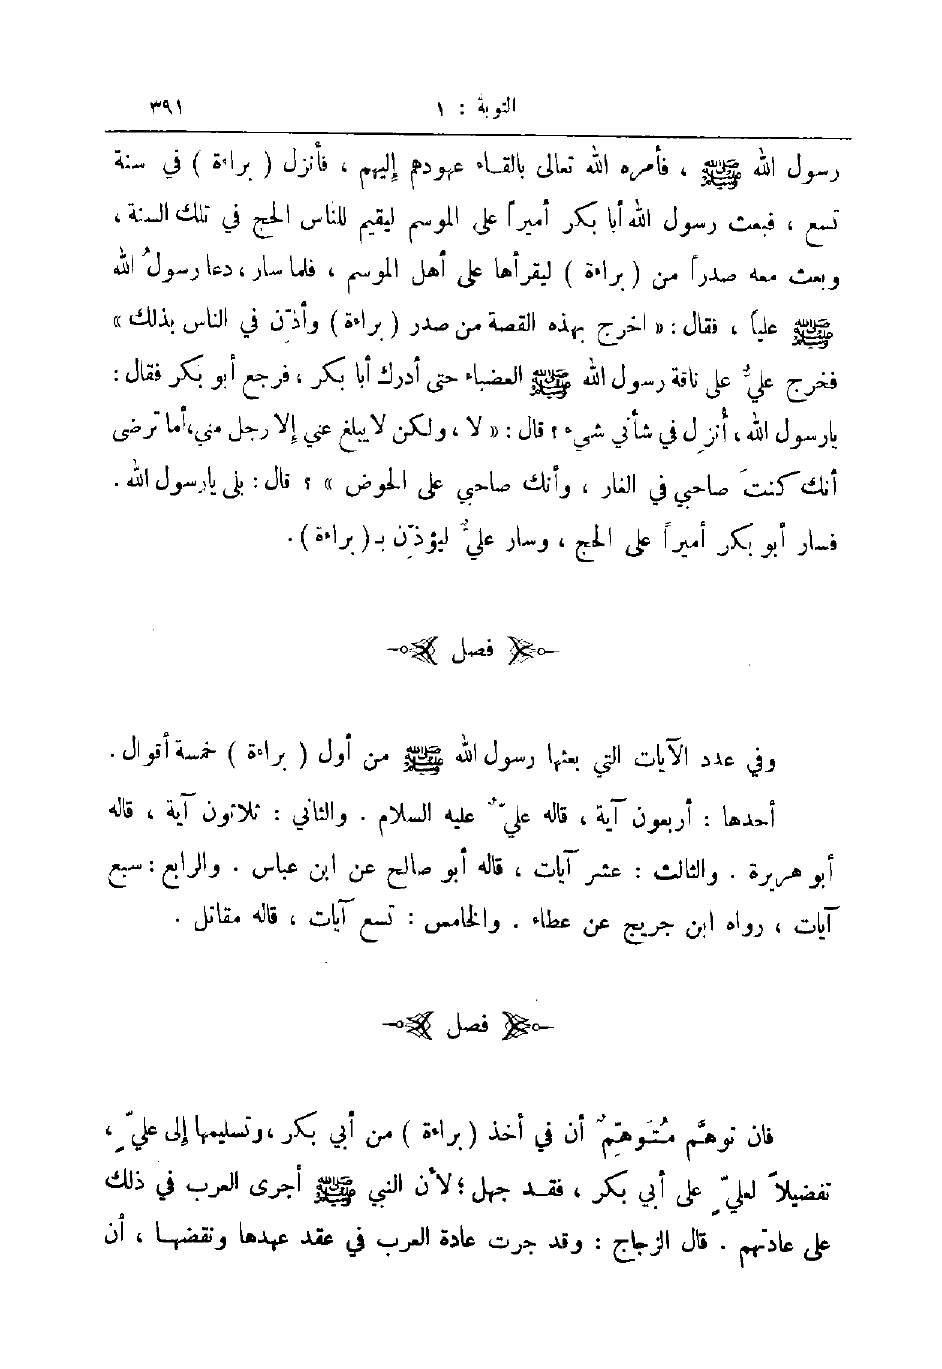 التوبة : ١ ٣٩١
رسول الله ﷺ ، فأمره الله تعالى بالقاء عهودهم إليهم ، فأنزل ( براءة ) في سنة
تسع ، فبعث رسول الله أبا بكر أميراً على الموسم ليقيم للناس الحج في تلك السنة ،
وبعث معه صدراً من ( براءة ) ليقرأها على أهل الموسم ، فلما سار ، دعا رسولُ الله
ﷺ علياً ، فقال : « اخرج بهذه القصة من صدر ( براءة ) وأذّن في الناس بذلك »
فخرج عليٌّ على ناقة رسول الله ﷺ العضباء حتى أدرك أبا بكر ، فرجع أبو بكر فقال :
يارسول الله ، أُنزِل في شأني شيء ؟ قال : « لا ، ولكن لا يبلغ عني إلا رجل مني ، أما ترضى
أنك كنتَ صاحبي في الغار ، وأنك صاحبي على الحوض » ؟ قال : بلى يارسول الله .
فسار أبو بكر أميراً على الحج ، وسار عليٌّ ليؤذّن بـ ( براءة ) .
فصل
وفي عدد الآيات التي بعثها رسول الله ﷺ من أول ( براءة ) خمسة أقوال .
أحدها : أربعون آية ، قاله عليٌّ عليه السلام . والثاني : ثلاثون آية ، قاله
أبو هريرة . والثالث : عشر آيات ، قاله أبو صالح عن ابن عباس . والرابع : سبع
آيات ، رواه ابن جريج عن عطاء . والخامس : تسع آيات ، قاله مقاتل .
فصل
فان توهَّم مُتَوهِّمٌ أن في أخذ ( براءة ) من أبي بكر ، وتسليمها إلى عليٍّ ،
تفضيلاً لعليٍّ على أبي بكر ، فقد جهل ؛ لأن النبي ﷺ أجرى العرب في ذلك
على عادتهم . قال الزجاج : وقد جرت عادة العرب في عقد عهدها ونقضها ، أن